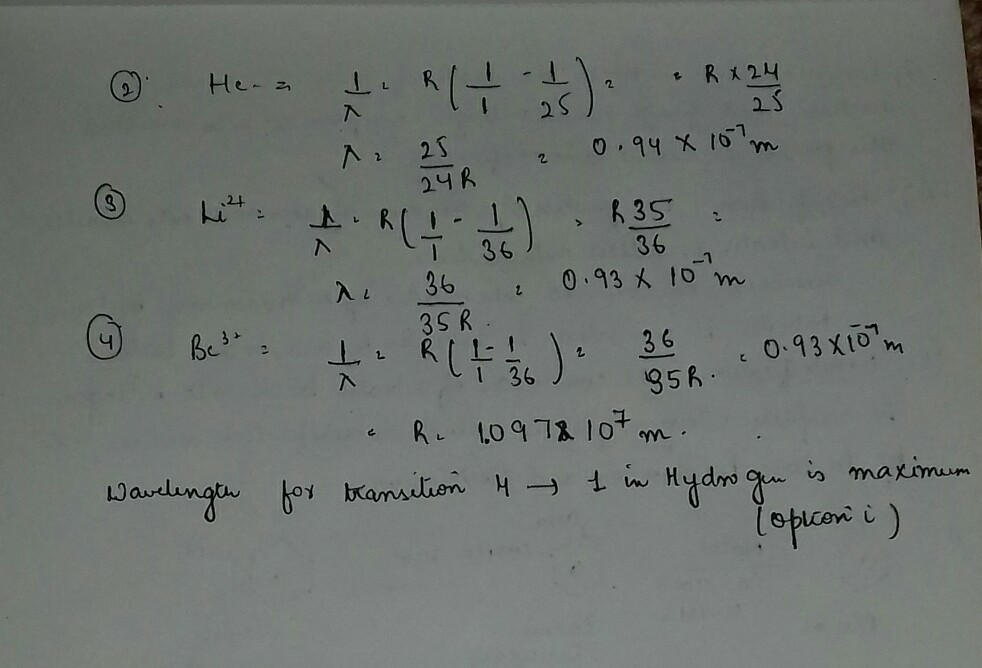 ② He- = 1/λ = R(1/1 - 1/25) = = R × 24/25
λ = 25/24R = 0.94 × 10⁻⁷ m
③ Li²⁺ = 1/λ = R(1/1 - 1/36) = R 35/36 =
λ = 36/35R = 0.93 × 10⁻⁷ m
④ Be³⁺ = 1/λ = R(1/1 - 1/36) = 36/35R. = 0.93×10⁻⁷ m
= R = 1.097 × 10⁷ m.
Wavelength for transition 4 → 1 in Hydrogen is maximum
(option i)